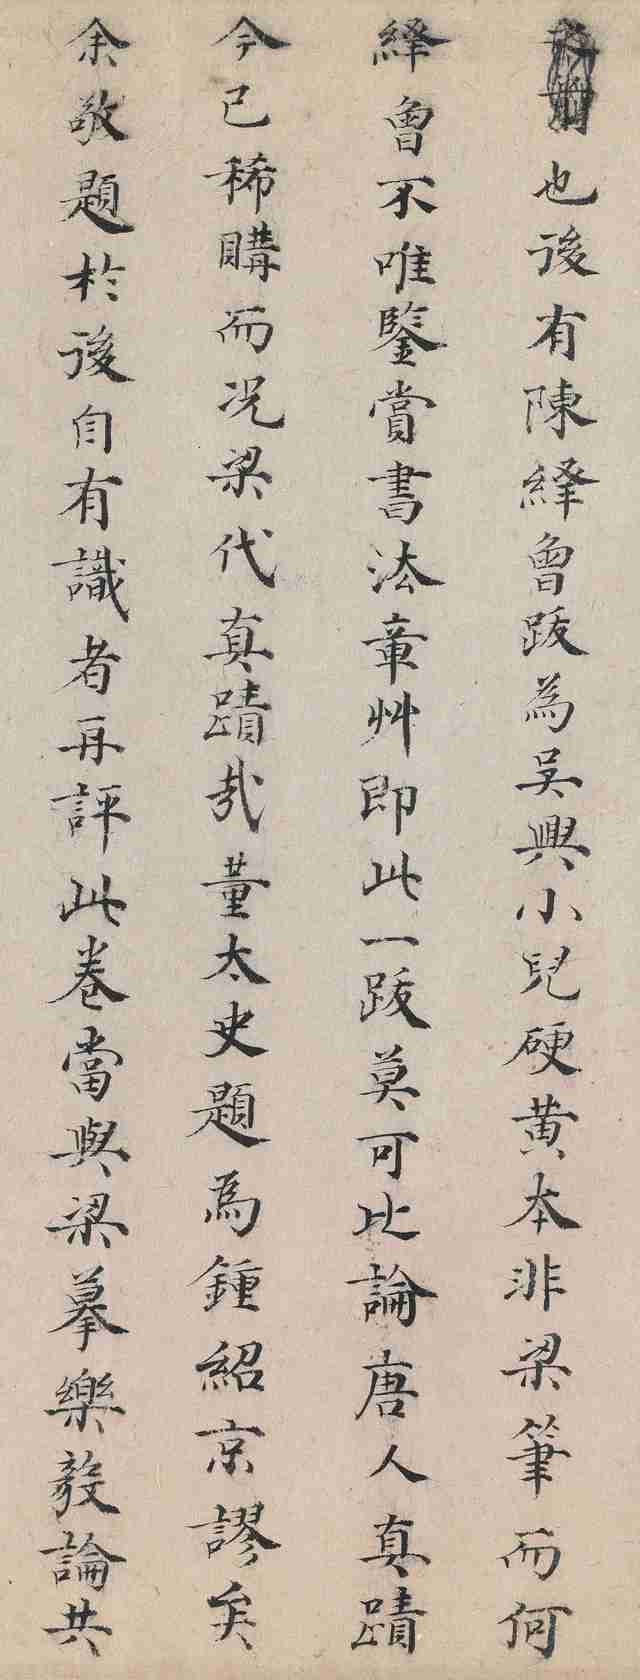 也後有陳繹曾跋為吴興小兒硬黄本非梁筆而何
繹曾不唯鑒賞書法章艸即此一跋莫可比論唐人真蹟
今已稀購而况梁代真蹟哉董太史題為鍾紹京謬矣
余敬題於後自有識者再評此卷當與梁摹樂毅論共